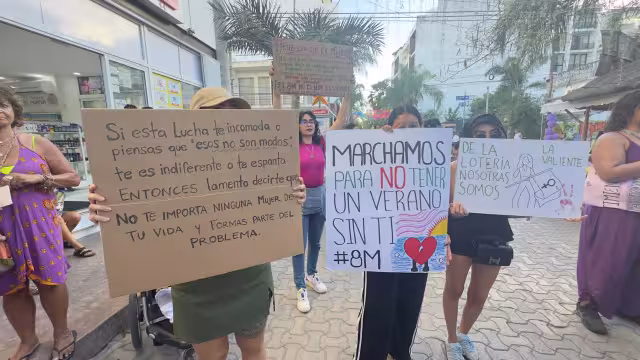 Si esta Lucha te incomoda o
piensas que "esos no son modos"
te es indiferente o te espanta
ENTONCES lamento decirte que
NO TE IMPORTA NINGUNA MUJER DE
TU VIDA Y FORMAS PARTE DEL
PROBLEMA.
MARCHAMOS
PARA NO TENER
UN VERANO
SIN TI
#8M
DE LA
LOTERÍA
NOSOTRAS
SOMOS
LA
VALIENTE